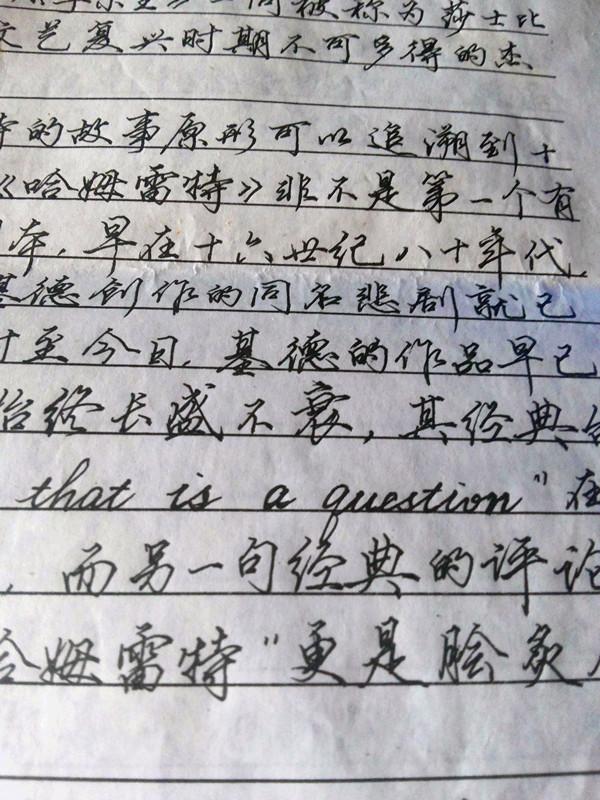 一同被称为莎士比
文艺复兴时期不可多得的杰
的故事原形可以追溯到十
《哈姆雷特》非不是第一个有
本，早在十六世纪八十年代，
基德创作的同名悲剧就已
时至今日，基德的作品早已
始终长盛不衰，其经典台
that is a question"在
，而另一句经典的评论
哈姆雷特"更是脍炙